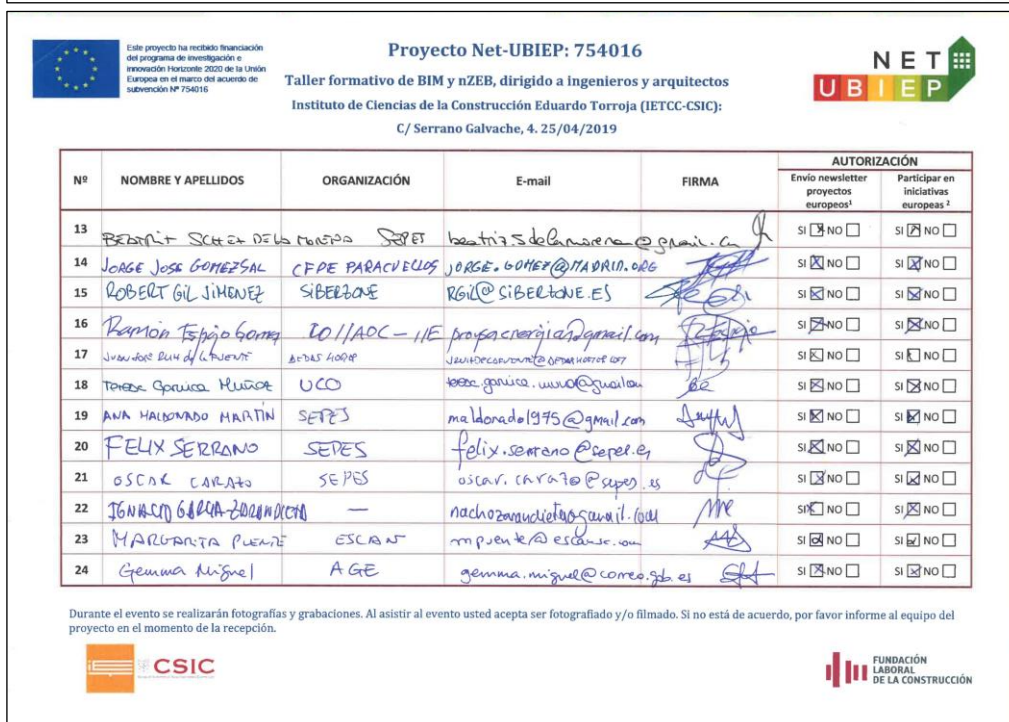 Este proyecto ha recibido financiación
del programa de investigación e
innovación Horizonte 2020 de la Unión
Europea en el marco del acuerdo de
subvención Nº 754016
Proyecto Net-UBIEP: 754016
Taller formativo de BIM y nZEB, dirigido a ingenieros y arquitectos
Instituto de Ciencias de la Construcción Eduardo Torroja (IETCC-CSIC):
C/ Serrano Galvache, 4. 25/04/2019
NET
UBIEP
Nº NOMBRE Y APELLIDOS ORGANIZACIÓN E-mail FIRMA AUTORIZACIÓN
Envío newsletter proyectos europeos¹ Participar en iniciativas europeas ²
13 SEPES SI NO SI NO
14 JORGE JOSE GOMEZSAL CFPE PARACUELLOS JORGE.GOMEZ@MADRID.ORG SI NO SI NO
15 ROBERT GIL JIMENEZ SIBERZONE RGIL@SIBERZONE.ES SI NO SI NO
16 Ramón Espejo Gomez SI NO SI NO
17 SI NO SI NO
18 Muñoz UCO SI NO SI NO
19 ANA MALDONADO MARTÍN SEPES maldonado1975@gmail.com SI NO SI NO
20 FELIX SERRANO SEPES felix.serrano@sepes.es SI NO SI NO
21 OSCAR SEPES SI NO SI NO
22 IGNACIO — SI NO SI NO
23 MARGARITA PUENTE ESCAN SI NO SI NO
24 Gemma Miguel AGE gemma.miguel@correo.gob.es SI NO SI NO
Durante el evento se realizarán fotografías y grabaciones. Al asistir al evento usted acepta ser fotografiado y/o filmado. Si no está de acuerdo, por favor informe al equipo del
proyecto en el momento de la recepción.
CSIC
FUNDACIÓN
LABORAL
DE LA CONSTRUCCIÓN